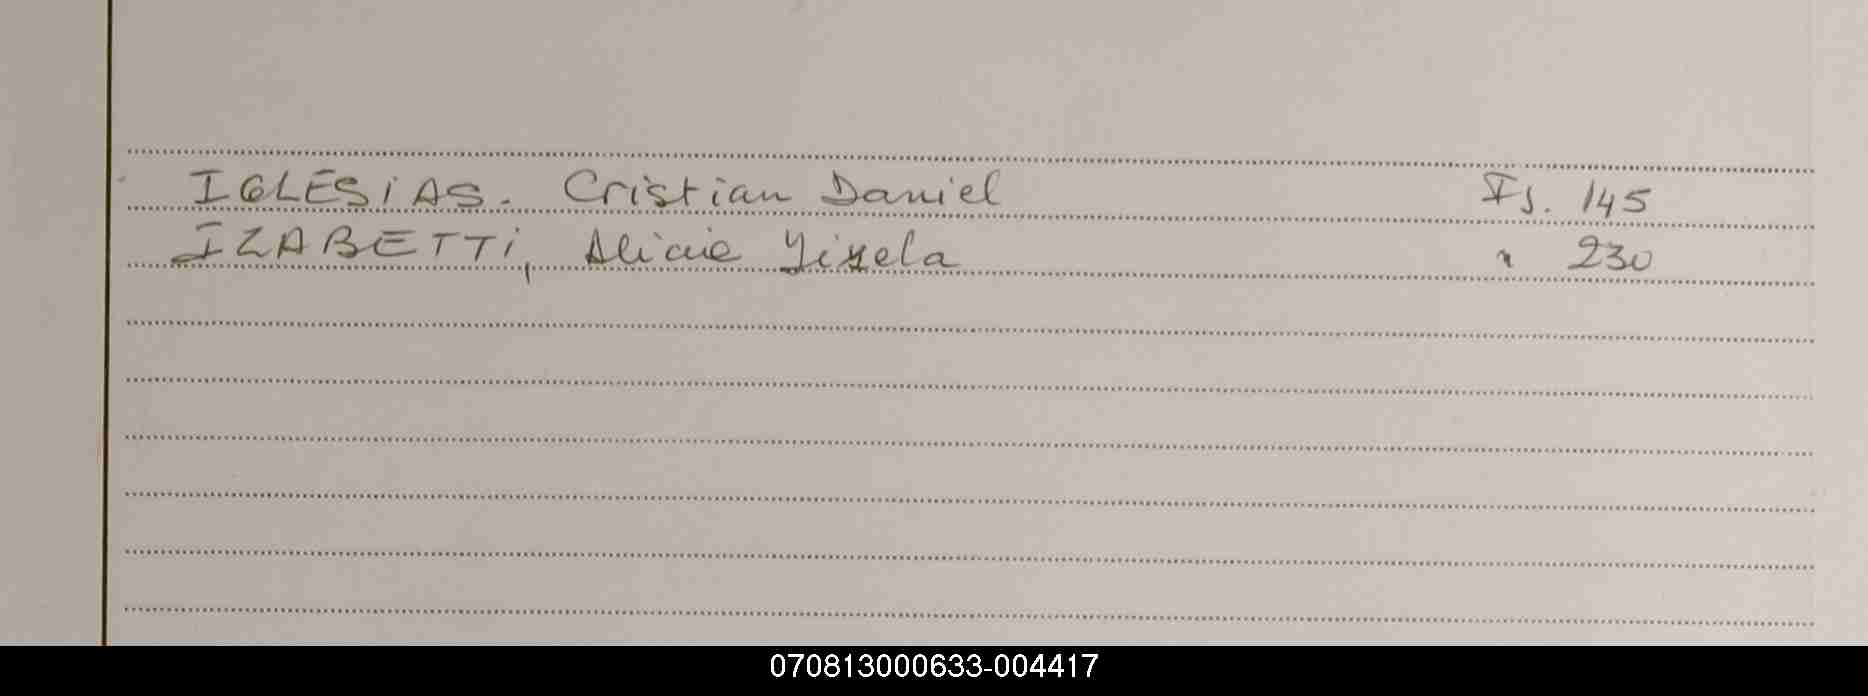 IGLESiAS. Cristian Daniel Fs. 145
IZABETTi, Alicia Gisela " 230
070813000633-004417